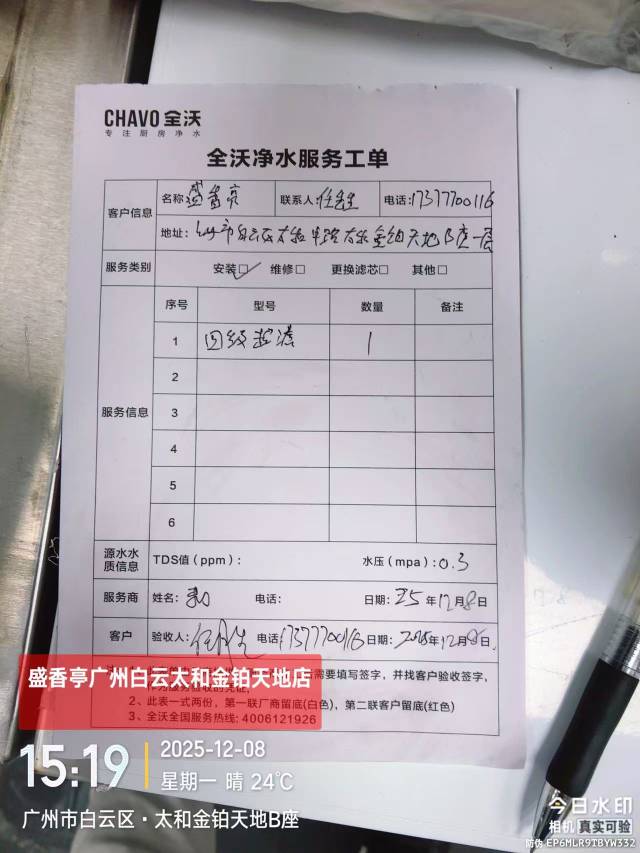 CHAVO 全沃
专注厨房净水
全沃净水服务工单
客户信息 名称 盛香亭 联系人 任先生 电话:17377700116
地址: 广州市白云区太和中路太和金铂天地B座一层
服务类别 安装☑ 维修□ 更换滤芯□ 其他□
服务信息 序号 型号 数量 备注
1 四级超滤 1
2
3
4
5
6
源水水质信息 TDS值(ppm): 水压(mpa):0.3
服务商 姓名: 电话: 日期: 25年12月8日
客户 验收人: 任先生 电话17377700116日期:2025年12月8日
需要填写签字,并找客户验收签字,
作为服务验收的凭证。
2、此表一式两份,第一联厂商留底(白色),第二联客户留底(红色)
3、全沃全国服务热线:4006121926
盛香亭广州白云太和金铂天地店
15:19 2025-12-08
星期一 晴 24℃
广州市白云区·太和金铂天地B座
今日水印
相机 真实可验
防伪 EP6MLR9TBYW332